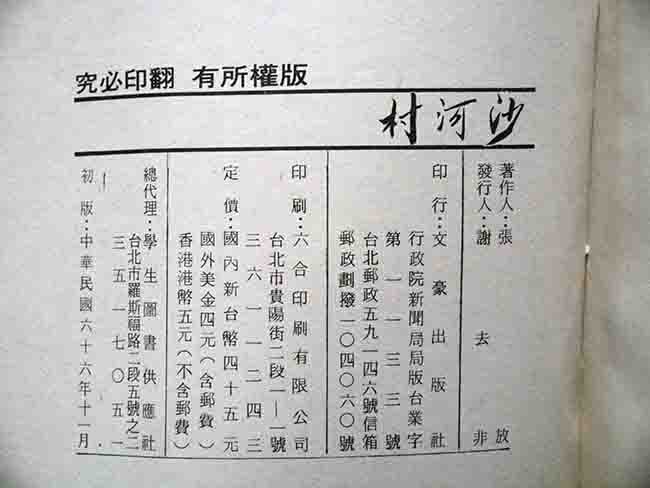 版權所有 翻印必究
沙河村
著作人：張放
發行人：謝去非
印行：文豪出版社
行政院新聞局局版台業字
第一一三三號
台北郵政五九一四六號信箱
郵政劃撥一〇四〇六〇號
印刷：六合印刷有限公司
台北市貴陽街二段一—一號
三六一一二四三
定價：國內新台幣四十五元
國外美金四元（含郵費）
香港港幣五元（不含郵費）
總代理：學生圖書供應社
台北市羅斯福路二段五號之二
三五一七〇五一
初版：中華民國六十六年十一月